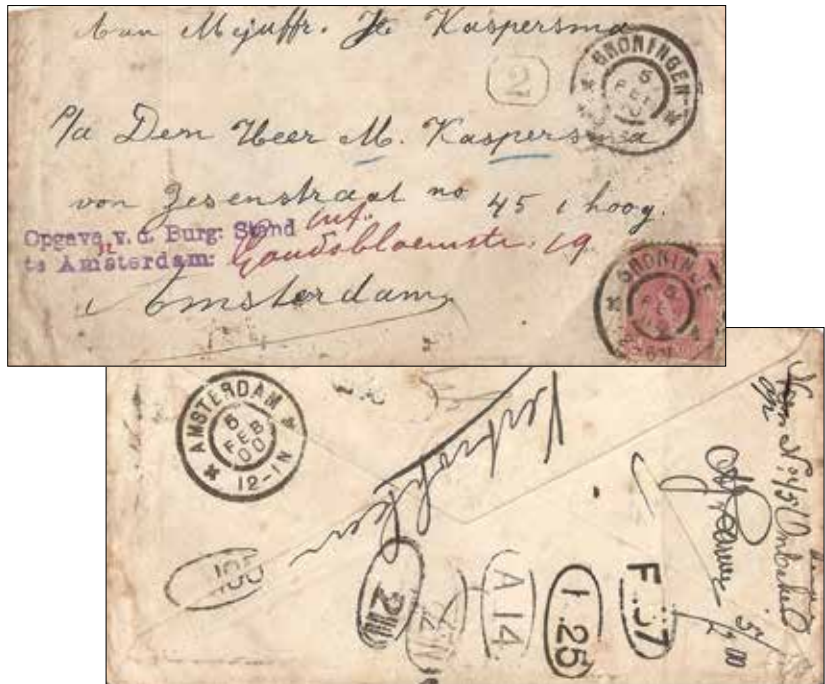 Aan Mejuffr. Je Kaspersma
2
GRONINGEN
5
FEB
P/a Den Heer M. Kaspersma
von Zesenstraat no 45 1 hoog.
Opgave v. d. Burg: Stand
te Amsterdam: Goudsbloemstr. 19
Amsterdam
GRONINGEN
5
FEB
AMSTERDAM
5
FEB
00
12-1N
Vertrokken
100
2III
A 14
1.25
F.37
No 45 Onbekend
5/2 00